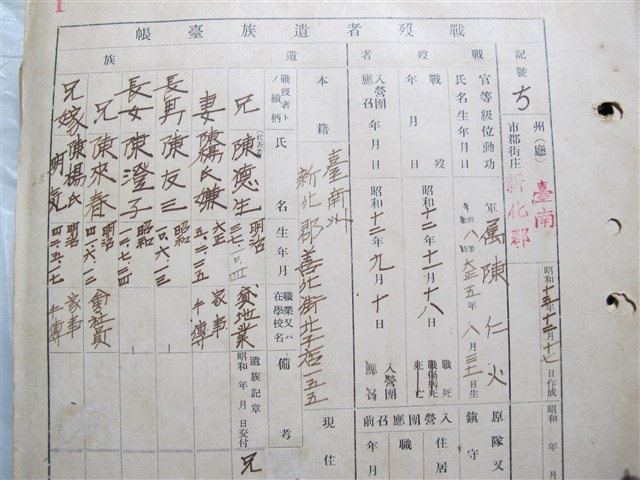 戰歿者遺族臺帳
記號 ち
州(廳) 臺南
市郡街庄 新化郡
昭和十五年十二月十七日作成
昭和 年 月
官等級位勳功 軍属
氏名生年月 陳仁火 大正五年八月三十一日生
戰歿年月日 昭和十三年十一月十八日
戰死
戰傷病死
死亡
入營團應召年月日 昭和十三年九月十日
入營團應召
原隊又
鎮守
入營團應召前
住居
職
年月
遺族
本籍 臺南州新化郡善化街北子店一五五
現住
戰歿者トノ續柄 氏名 生年月 職業又ハ在學校名 備考
遺族記章
昭和 年 月 日交付
兄 陳德生 明治 貸地業
兄
妻 陳楊氏嫌 大正 五、三、二五 家事
長男 陳友三 昭和 一〇、六、一三
長女 陳澄子 昭和
兄 陳來春 明治 會社員
兄嫁 陳楊氏 明治 四三、五、一七 家事